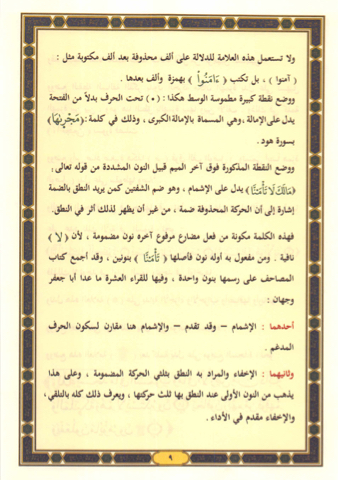 ولا تستعمل هذه العلامة للدلالة على ألف محذوفة بعد ألف مكتوبة مثل :
( آمنوا ) ، بل تكتب ﴿ ءَامَنُواْ ﴾ بهمزة وألف بعدها .
ووضع نقطة كبيرة مطموسة الوسط هكذا : ( • ) تحت الحرف بدلاً من الفتحة
يدل على الإمالة ، وهي المسماة بالإمالة الكبرى ، وذلك في كلمة : ﴿ مَجْر۪ىٰهَا ﴾
بسورة هود .
ووضع النقطة المذكورة فوق آخر الميم قبيل النون المشددة من قوله تعالى :
﴿ مَالَكَ لَا تَأْمَ۫نَّا ﴾ يدل على الإشمام ، وهو ضم الشفتين كمن يريد النطق بالضمة
إشارة إلى أن الحركة المحذوفة ضمة ، من غير أن يظهر لذلك أثر في النطق.
فهذه الكلمة مكونة من فعل مضارع مرفوع آخره نون مضمومة ، لأن ﴿ لَا ﴾
نافية . ومن مفعول به أوله نون فأصلها ﴿ تَأْمَنُنَا ﴾ بنونين ، وقد أجمع كتاب
المصاحف على رسمها بنون واحدة ، وفيها للقراء العشرة ما عدا أبا جعفر
وجهان :
أحدهما : الإشمام – وقد تقدم – والإشمام هنا مقارن لسكون الحرف
المدغم .
وثانيهما : الإخفاء والمراد به النطق بثلثي الحركة المضمومة ، وعلى هذا
يذهب من النون الأولى عند النطق بها ثلث حركتها ، ويعرف ذلك كله بالتلقي ،
والإخفاء مقدم في الأداء .
٩